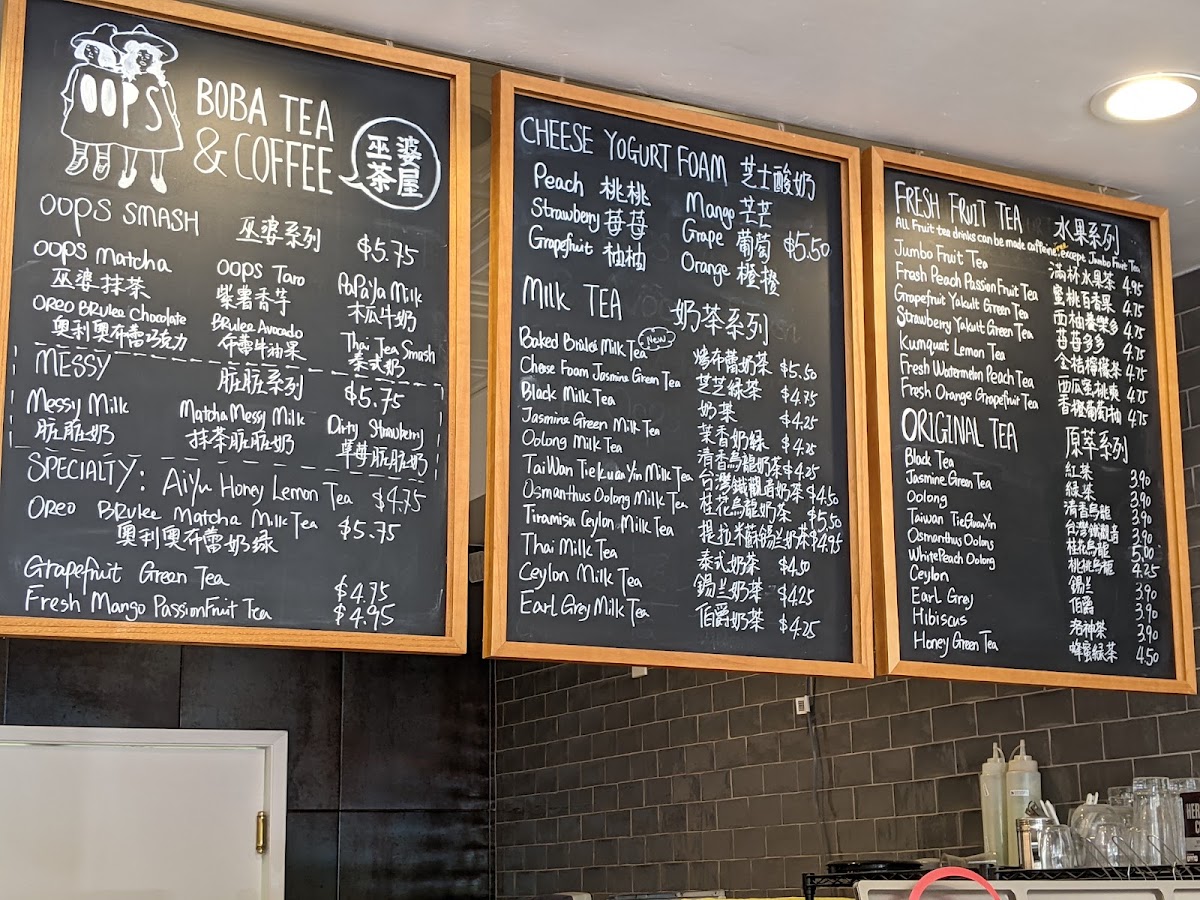 OOPS
BOBA TEA
& COFFEE
巫婆
茶屋
OOPS SMASH 巫婆系列 $5.75
OOPS Matcha OOPS Taro PaPaya Milk
巫婆抹茶 紫薯香芋 木瓜牛奶
OREO BRulee Chocolate BRulee Avocado Thai Tea Smash
奥利奥布蕾巧克力 布蕾牛油果 泰式奶
MESSY 脏脏系列 $5.75
Messy Milk Matcha Messy Milk Dirty Strawberry
脏脏奶 抹茶脏脏奶 草莓脏脏奶
SPECIALTY: Aiyu Honey Lemon Tea $4.75
OREO BRulee Matcha Milk Tea $5.75
奥利奥布蕾奶绿
Grapefruit Green Tea $4.75
Fresh Mango PassionFruit Tea $4.95
CHEESE YOGURT FOAM 芝士酸奶
Peach 桃桃 Mango 芒芒
Strawberry 莓莓 Grape 葡萄 $5.50
Grapefruit 柚柚 Orange 橙橙
Milk TEA 奶茶系列
New
Baked Brulei Milk Tea 烤布蕾奶茶 $5.50
Cheese Foam Jasmine Green Tea 芝芝绿茶 $4.75
Black Milk Tea 奶茶 $4.25
Jasmine Green Milk Tea 茉香奶绿 $4.25
Oolong Milk Tea 清香烏龍奶茶 $4.25
TaiWan TieKuanYin Milk Tea 台灣鐵觀音奶茶 $4.50
Osmanthus Oolong Milk Tea 桂花烏龍奶茶 $5.50
Tiramisu Ceylon Milk Tea 提拉米蘇錫兰奶茶 $4.95
Thai Milk Tea 泰式奶茶 $4.50
Ceylon Milk Tea 錫兰奶茶 $4.25
Earl Grey Milk Tea 伯爵奶茶 $4.25
FRESH FRUIT TEA 水果系列
All Fruit tea drinks can be made caffeine free except Jumbo Fruit Tea
Jumbo Fruit Tea 滿杯水果茶 4.95
Fresh Peach Passion Fruit Tea 蜜桃百香果 4.75
Grapefruit Yakult Green Tea 西柚養樂多 4.75
Strawberry Yakult Green Tea 莓莓多多 4.75
Kumquat Lemon Tea 金桔檸檬茶 4.75
Fresh Watermelon Peach Tea 西瓜蜜桃爽 4.75
Fresh Orange Grapefruit Tea 香橙葡萄柚 4.75
ORIGINAL TEA 原萃系列
Black Tea 紅茶 3.90
Jasmine Green Tea 緑茶 3.90
Oolong 清香烏龍 3.90
Taiwan TieGuanYin 台灣鐵觀音 3.90
Osmanthus Oolong 桂花烏龍 5.00
WhitePeach Oolong 桃桃烏龍 4.25
Ceylon 錫兰 3.90
Earl Grey 伯爵 3.90
Hibiscus 洛神茶 3.90
Honey Green Tea 蜂蜜緑茶 4.50